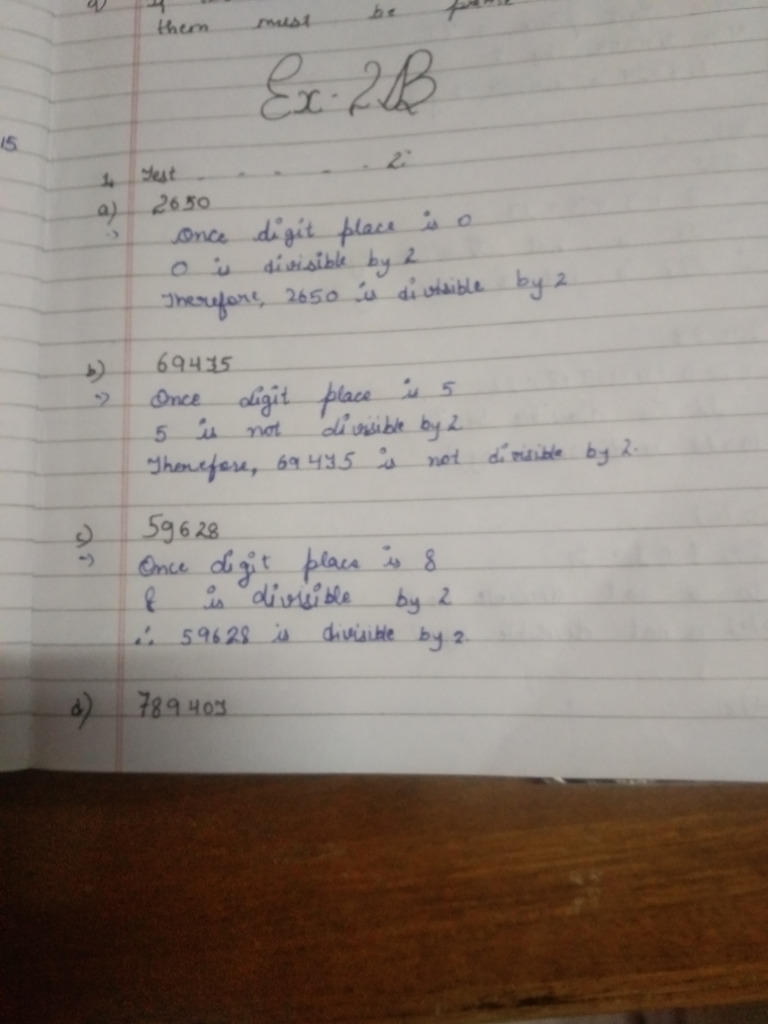 them must be
Ex-2B
15
1. Test . . . . . . 2:
a) 2650
⇒ Once digit place is 0
0 is divisible by 2
Therefore, 2650 is divisible by 2
b) 69475
⇒ Once digit place is 5
5 is not divisible by 2
Therefore, 69475 is not divisible by 2.
c) 59628
⇒ Once digit place is 8
8 is divisible by 2
∴ 59628 is divisible by 2.
d) 789407